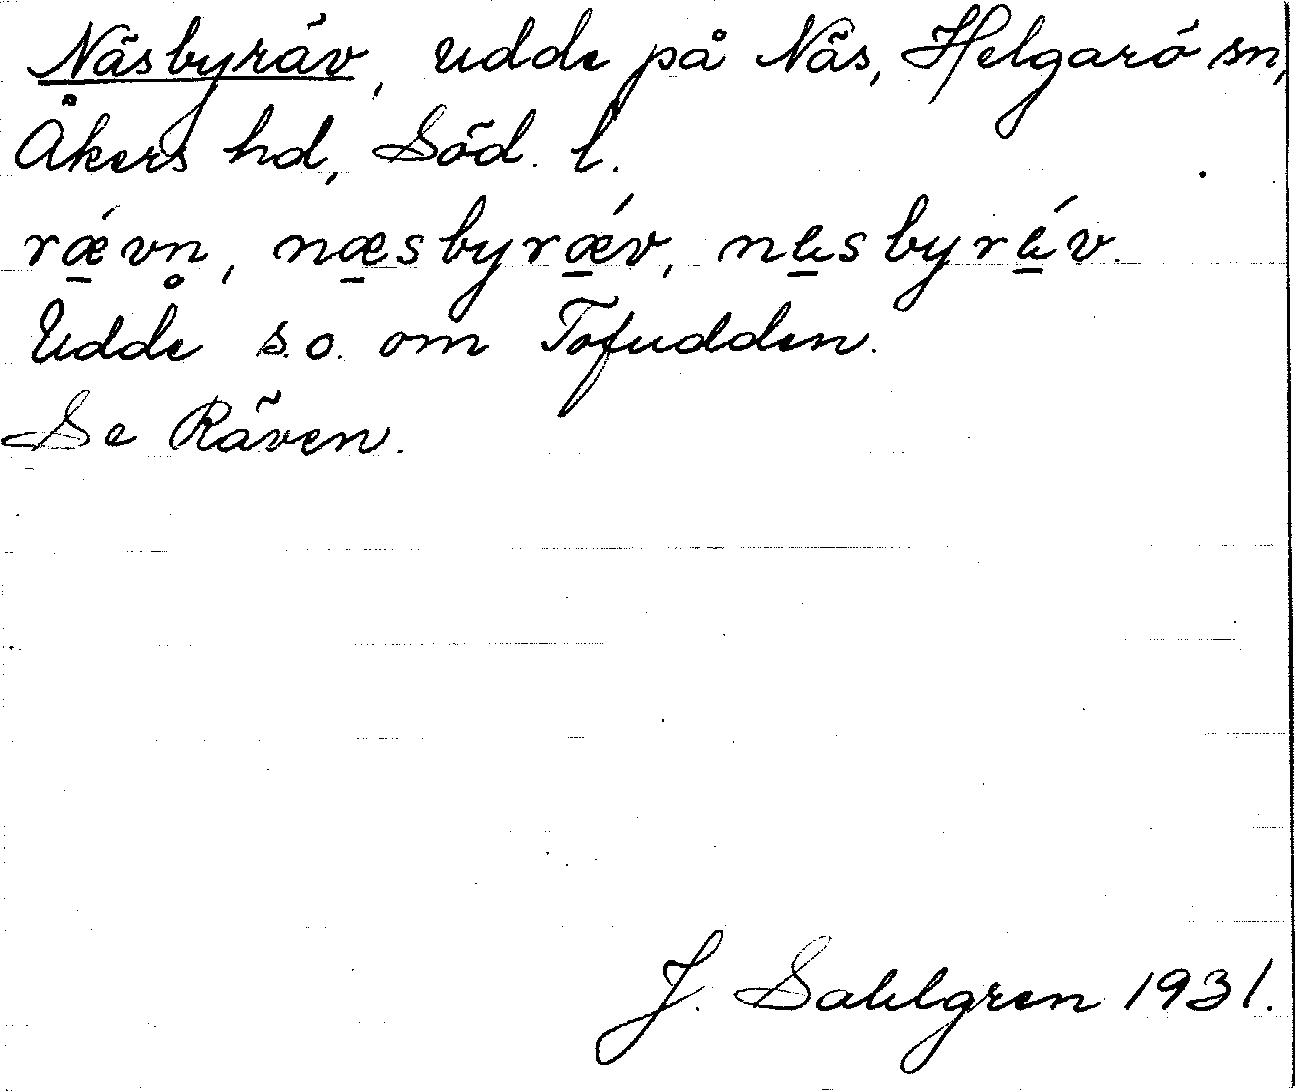 Näsbyräv, udde på Näs, Helgarö sn,
Åkers hd, Söd. l.
rǽ̠vn̥, næ̠sbyrǽ̠v, na̠sbyrá̠v.
Udde s.o. om Tofudden.
Se Räven.
J. Sahlgren 1931.